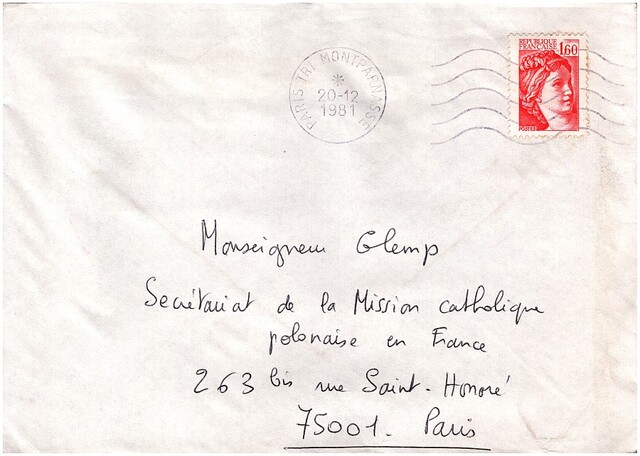 REPUBLIQUE
FRANÇAISE 1,60
POSTES
PARIS TRI MONTPARNASSE
20-12
1981
Monseigneur Glemp
Secrétariat de la Mission catholique
polonaise en France
263 bis rue Saint-Honoré
75001. Paris